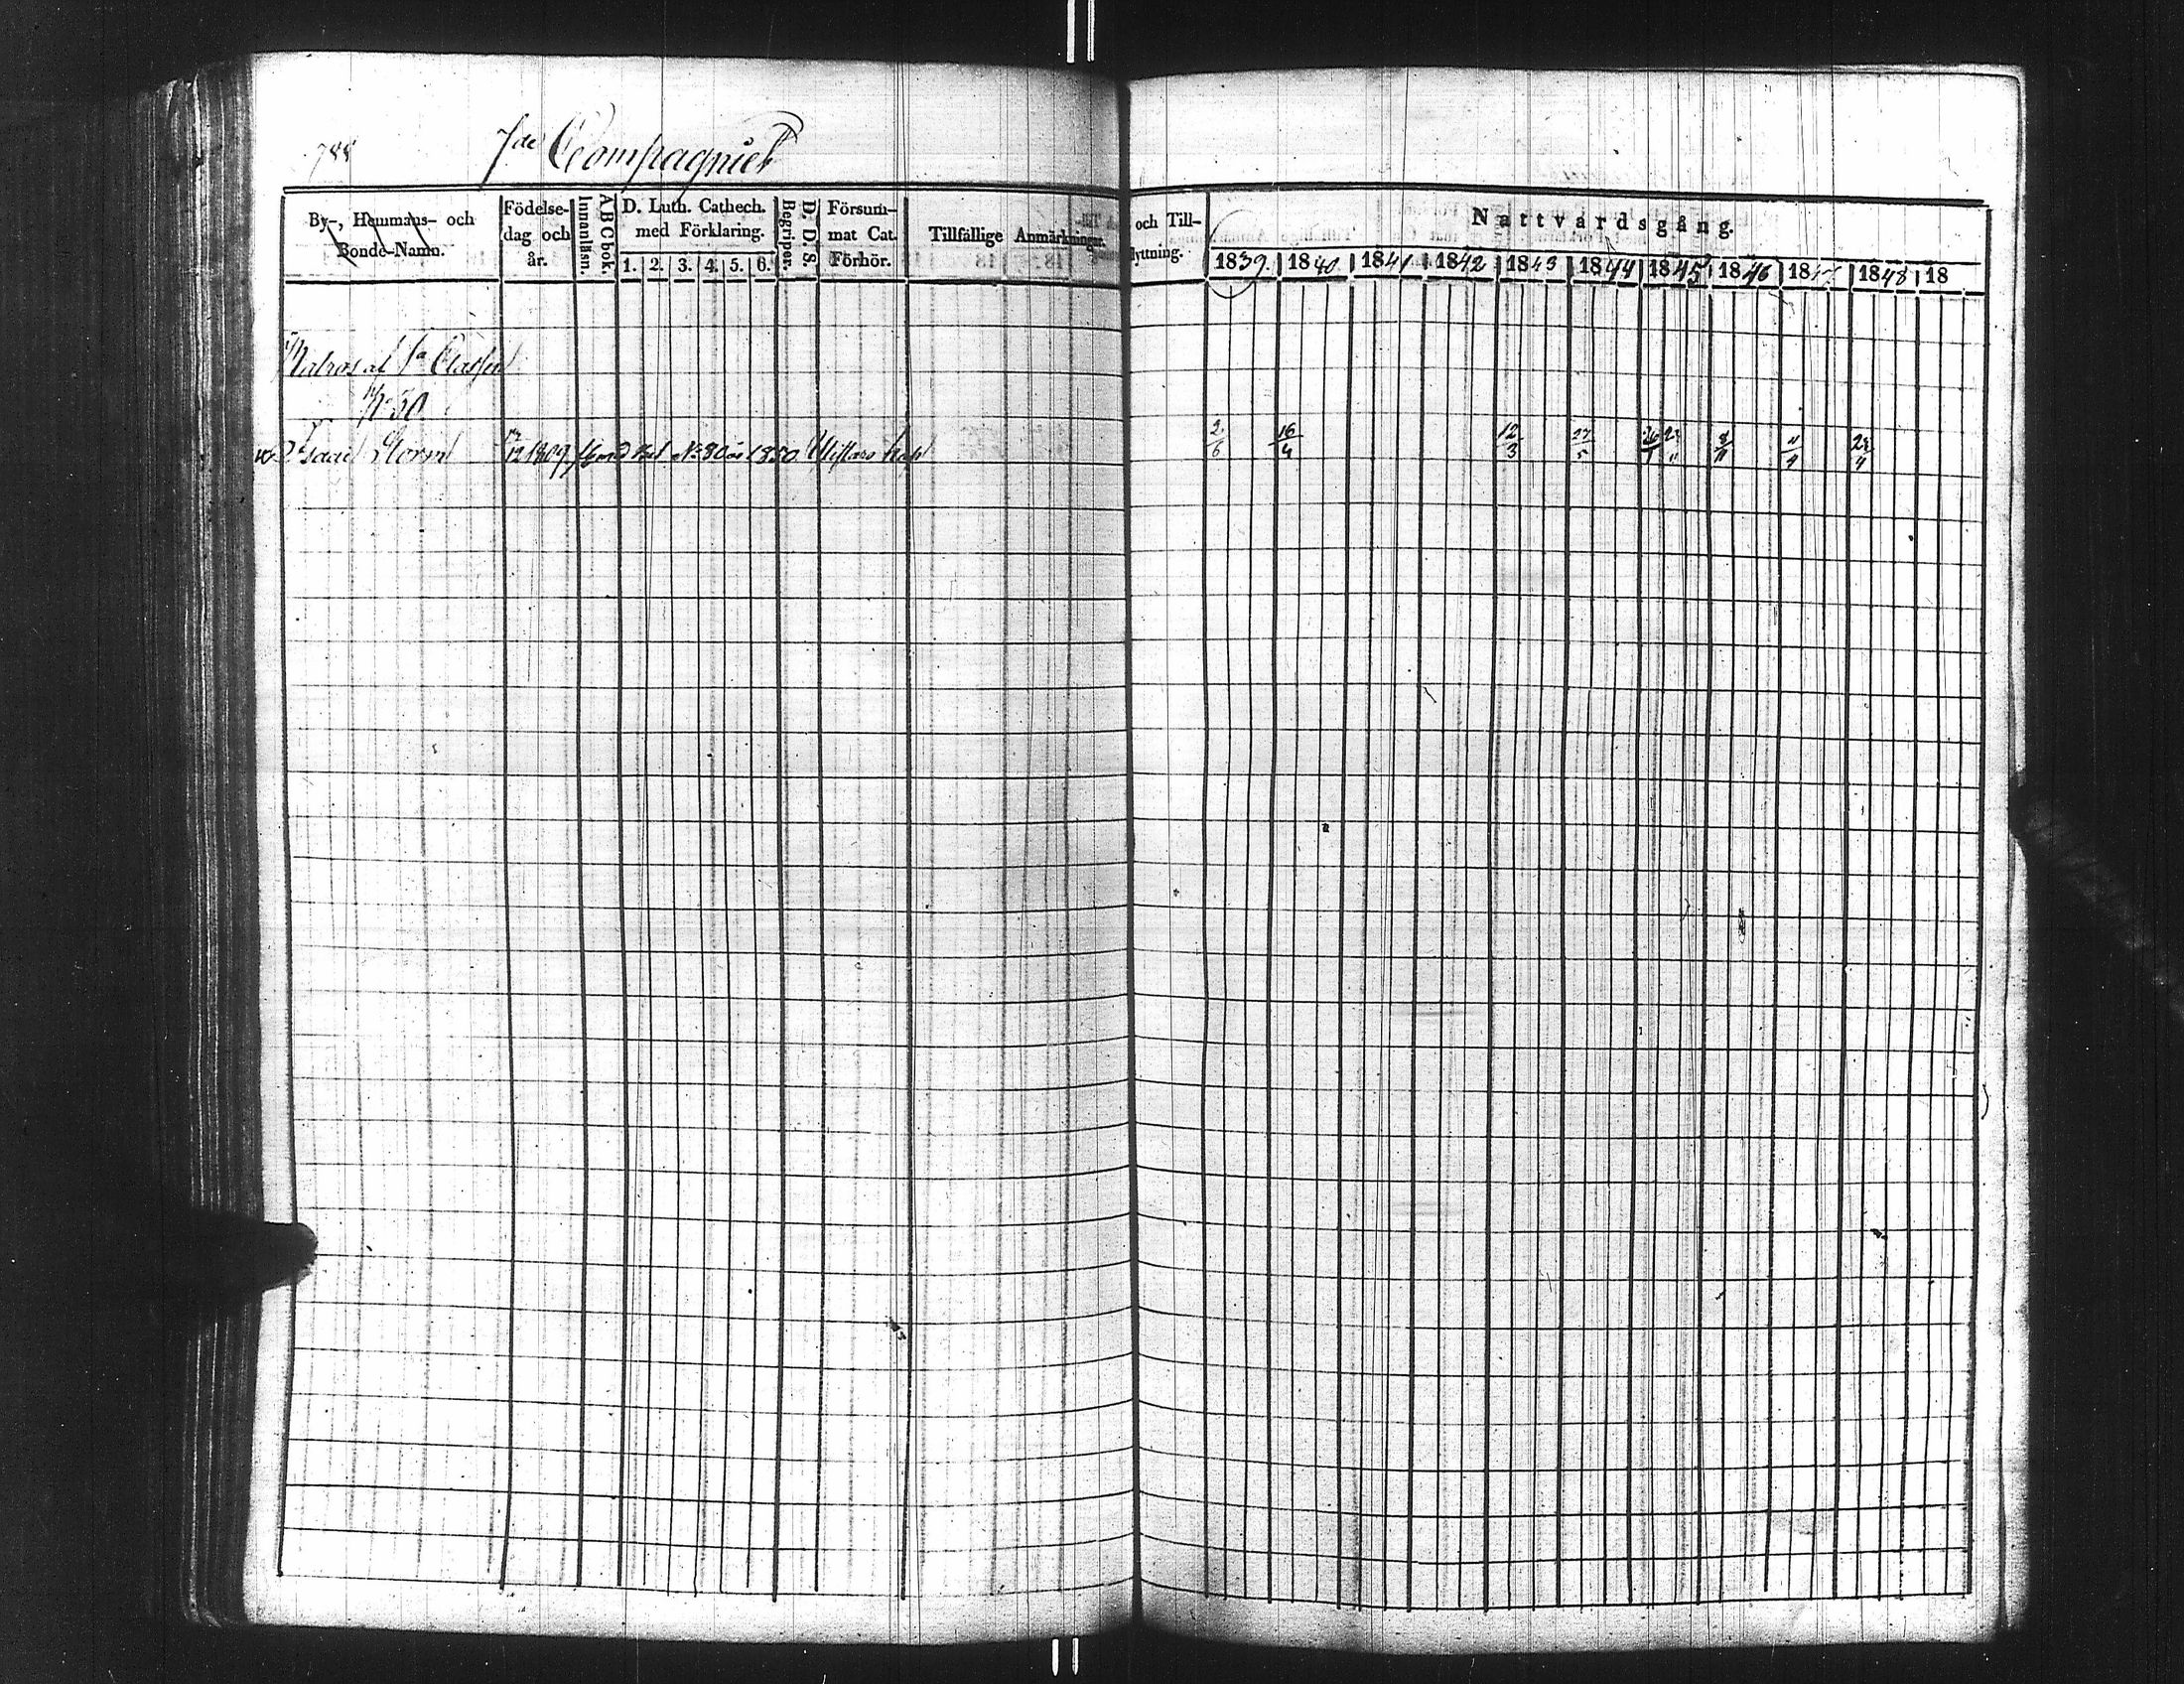 788
7de Compagniet
By-, Hemmans- och Bonde-Namn.
Födelse-dag och år.
Innanläsn.
ABCbok.
D. Luth. Cathech. med Förklaring.
1. 2. 3. 4. 5. 6.
Begriper.
D. D. S.
Försum-mat Cat. Förhör.
Tillfällige Anmärkningar.
och Till-
lyttning.
Nattvardsgång.
1839. 1840 1841 1842 1843 1844 1845 1846 1847 1848 18
Matros af 1a Classen
No 30
Isaac Storm 12 1809 No 30 1830
2/6 16/4 12/3 27/5 4 23/4